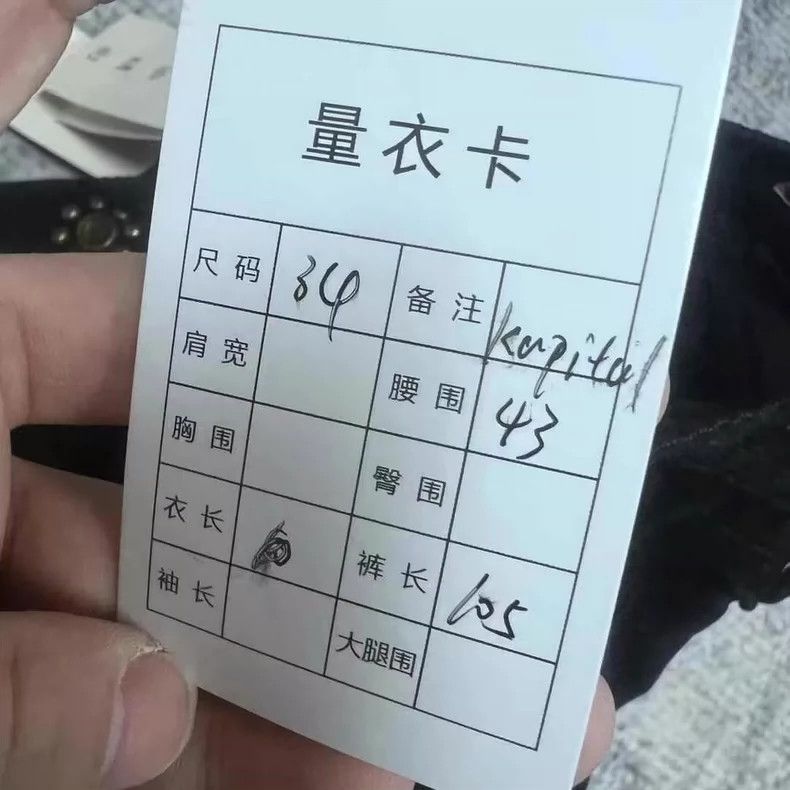 量衣卡
尺码 34 备注 kapital
肩宽 腰围 43
胸围 臀围
衣长 裤长 105
袖长 大腿围